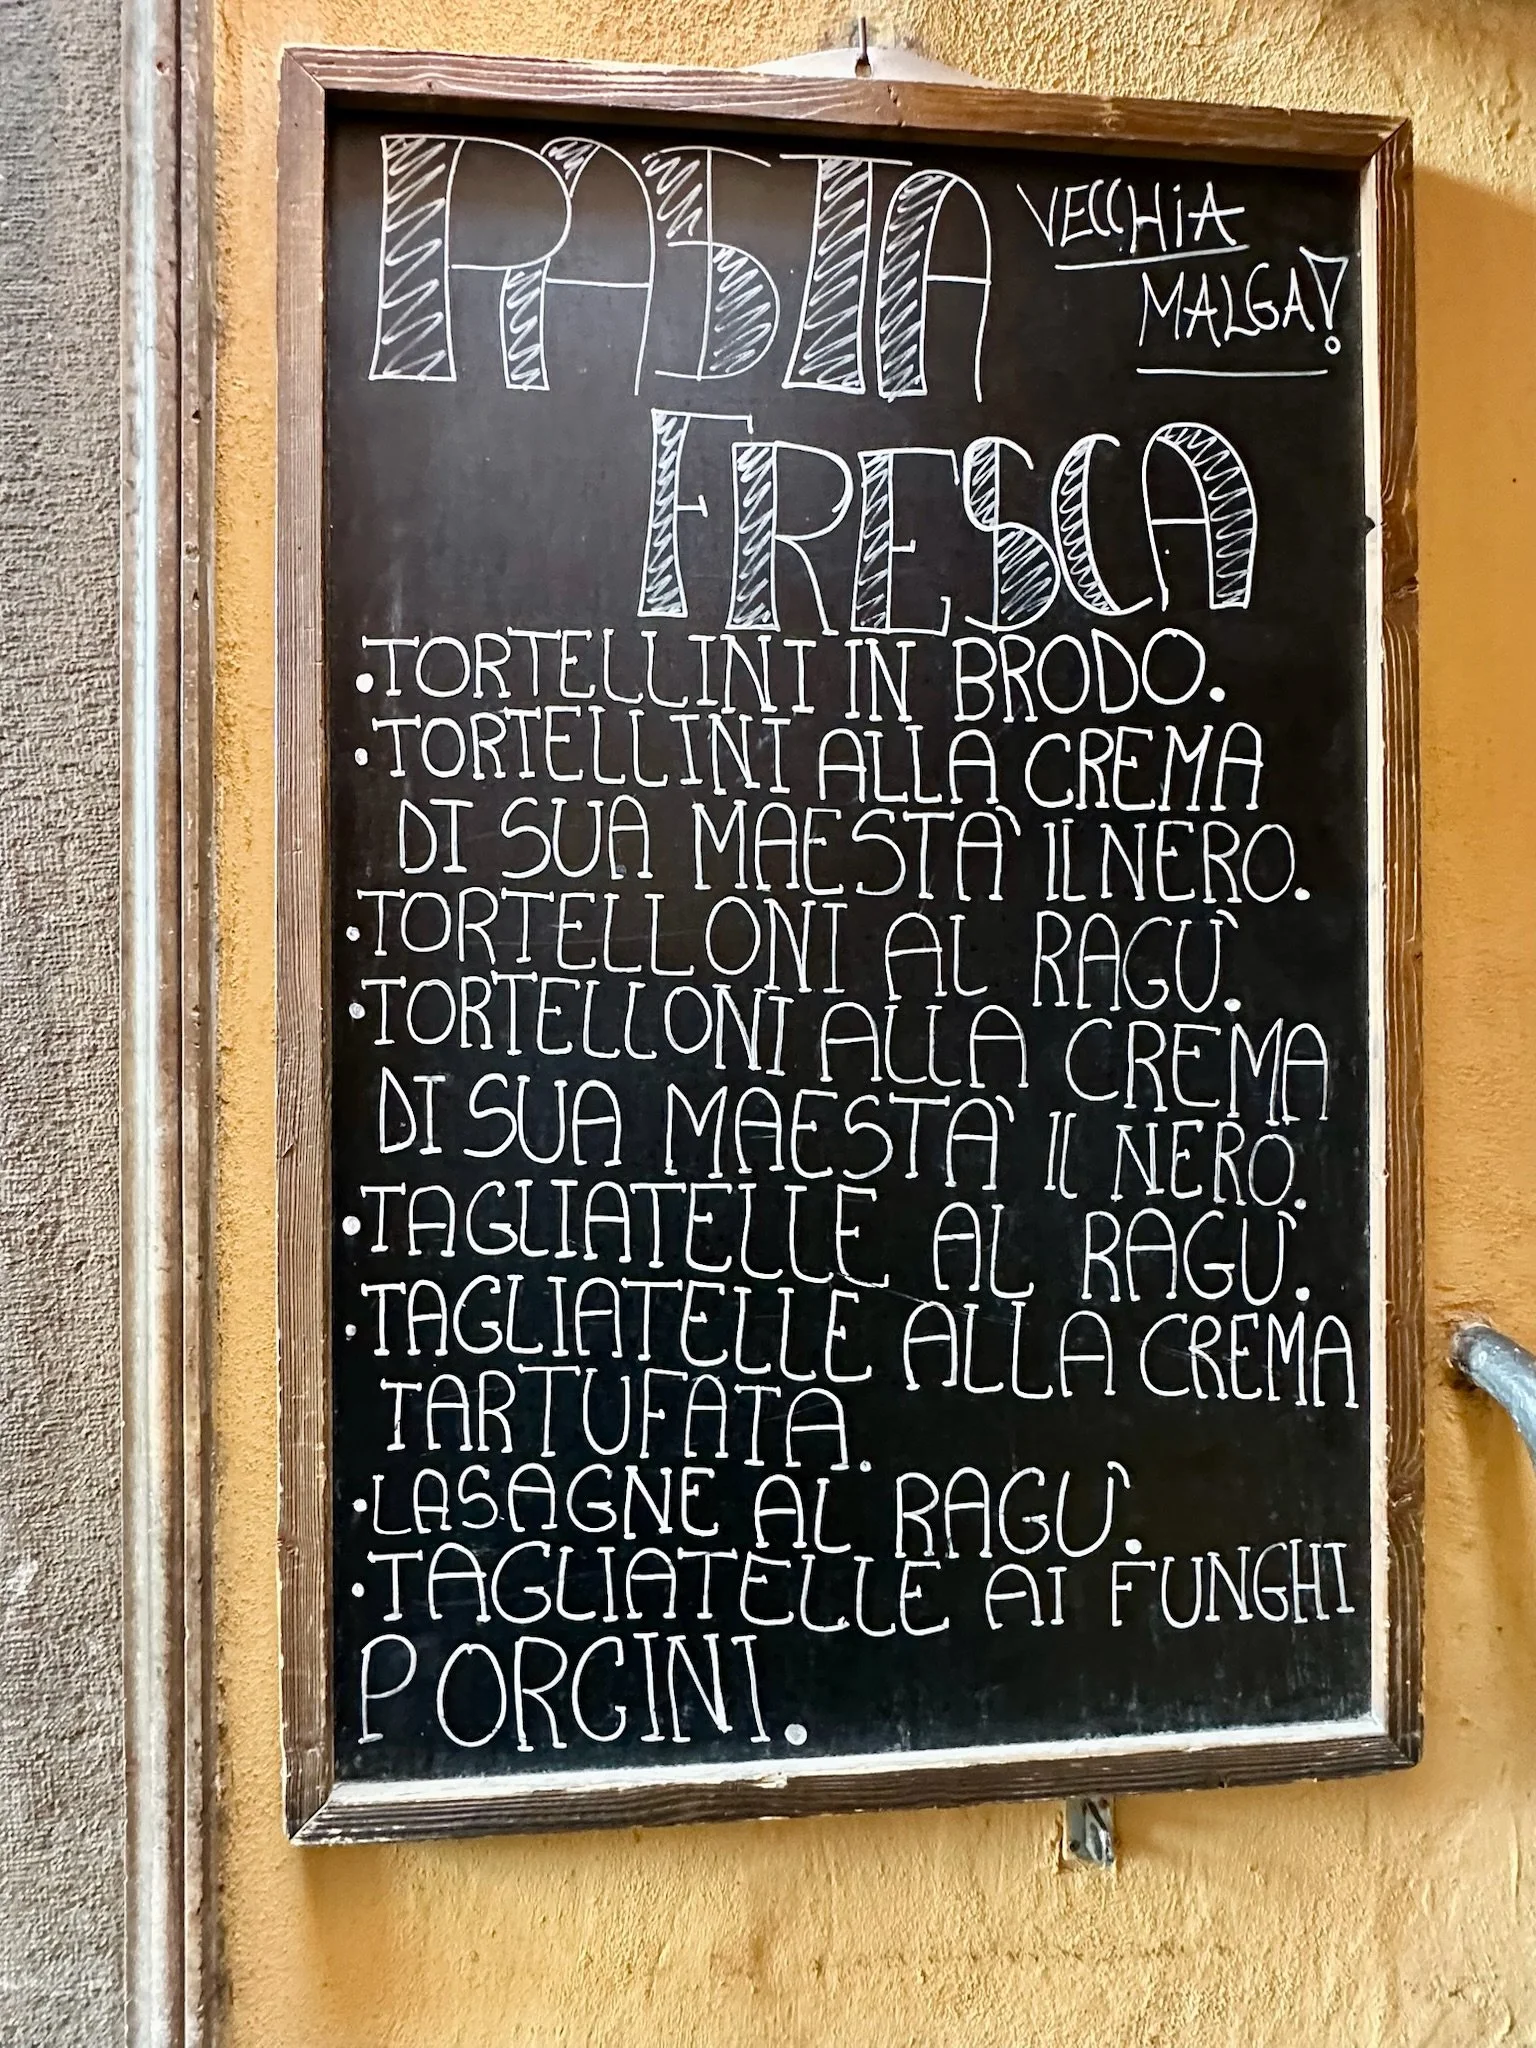 PASTA VECCHiA
MALGA!
FRESCA
•TORTELLINI IN BRODO.
•TORTELLINI ALLA CREMA
DI SUA MAESTA' IL NERO.
•TORTELLONI AL RAGU'.
•TORTELLONI ALLA CREMA
DI SUA MAESTA' IL NERO.
•TAGLIATELLE AL RAGU'.
•TAGLIATELLE ALLA CREMA
TARTUFATA.
•LASAGNE AL RAGU'.
•TAGLIATELLE AI FUNGHI
PORCINI.